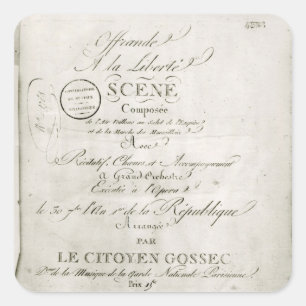 Offrande
A la Liberté
SCENE
Composée
de l'Air Veillons au Salut de l'Empire
et de la Marche des Marseillois
Avec
Récitatif, Chœurs et Accompagnement
à Grand Orchestre
Exécutée à l'Opera
le 30 7bre l'An 1er de la République
Arrangée
PAR
LE CITOYEN GOSSEC
de la Musique de la Garde Nationale Parisienne
Prix